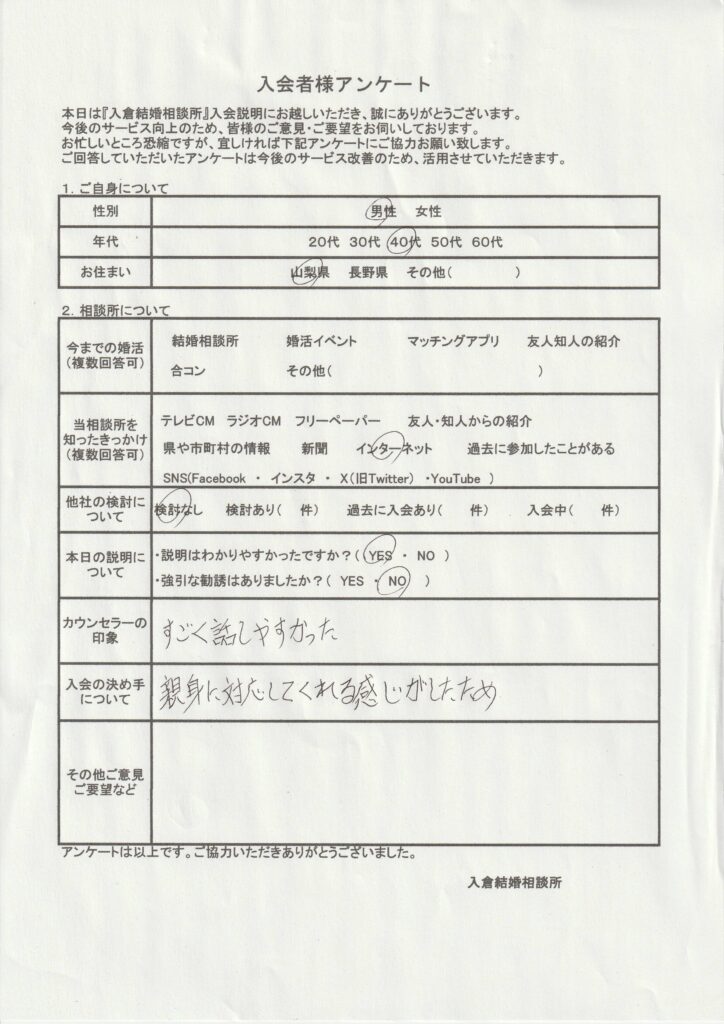 入会者様アンケート
本日は『入倉結婚相談所』入会説明にお越しいただき、誠にありがとうございます。
今後のサービス向上のため、皆様のご意見・ご要望をお伺いしております。
お忙しいところ恐縮ですが、宜しければ下記アンケートにご協力お願い致します。
ご回答していただいたアンケートは今後のサービス改善のため、活用させていただきます。
1. ご自身について
性別 男性 女性
年代 20代 30代 40代 50代 60代
お住まい 山梨県 長野県 その他( )
2. 相談所について
今までの婚活
(複数回答可)
結婚相談所 婚活イベント マッチングアプリ 友人知人の紹介
合コン その他( )
当相談所を
知ったきっかけ
(複数回答可)
テレビCM ラジオCM フリーペーパー 友人・知人からの紹介
県や市町村の情報 新聞 インターネット 過去に参加したことがある
SNS(Facebook ・ インスタ ・ X(旧Twitter) ・YouTube )
他社の検討に
ついて
検討なし 検討あり( 件) 過去に入会あり( 件) 入会中( 件)
本日の説明に
ついて
・説明はわかりやすかったですか?( YES ・ NO )
・強引な勧誘はありましたか?( YES ・ NO )
カウンセラーの
印象
すごく話しやすかった
入会の決め手
について
親身に対応してくれる感じがしたため
その他ご意見
ご要望など
アンケートは以上です。ご協力いただきありがとうございました。
入倉結婚相談所